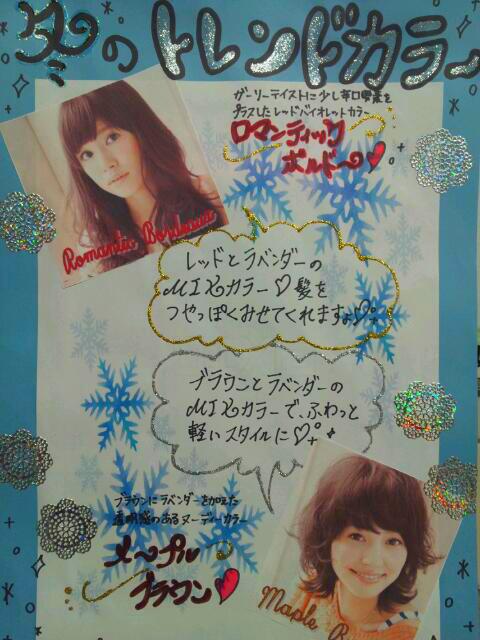 冬のトレンドカラー
ガーリーテイストに少し辛口要素を
プラスしたレッドバイオレットカラー
ロマンティック
ボルドー
Romantic Bordeaux
レッドとラベンダーの
MIXカラー♡髪を
つやっぽくみせてくれますよ♡
ブラウンとラベンダーの
MIXカラーで、ふわっと
軽いスタイルに♡
ブラウンにラベンダーを加えた
透明感のあるヌーディーカラー
メープル
ブラウン
Maple